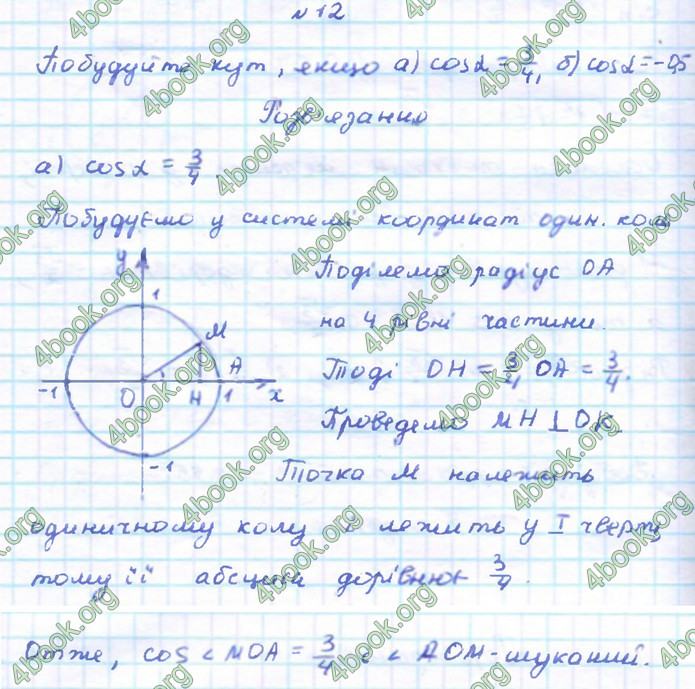 № 12
Побудуйте кут, якщо а) cosα = 3/4, б) cosα = -0,5
Розв'язання
а) cosα = 3/4.
Побудуємо у системі координат один. коло
Поділемо радіус OA
на 4 рівні частини.
y
1
M
A
-1
O
H
1
x
-1
Тоді OH = 3/4 OA = 3/4.
Проведемо MH ⊥ OK
Точка M належить
одиничному колу і лежить у I чверті
тому її абсциса дорівнює 3/4.
Отже, cos ∠MOA = 3/4 і ∠AOM - шуканий.
4book.org